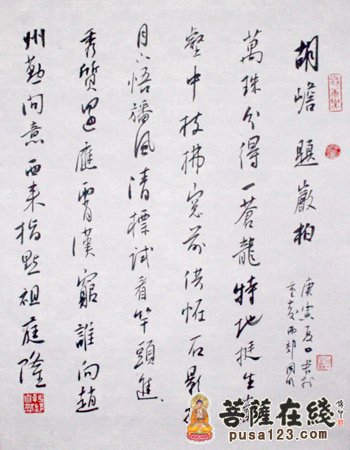 胡題巖柏
萬株分得一蒼龍特地挺生巖
壑中枝拂窗前供怪石影移
月下悟旛風清標試看竿頭進
秀質霄漢窮誰向趙
州勤問意西來指點祖庭隆
庚寅夏日書於
菩薩在綫
pusa123.com